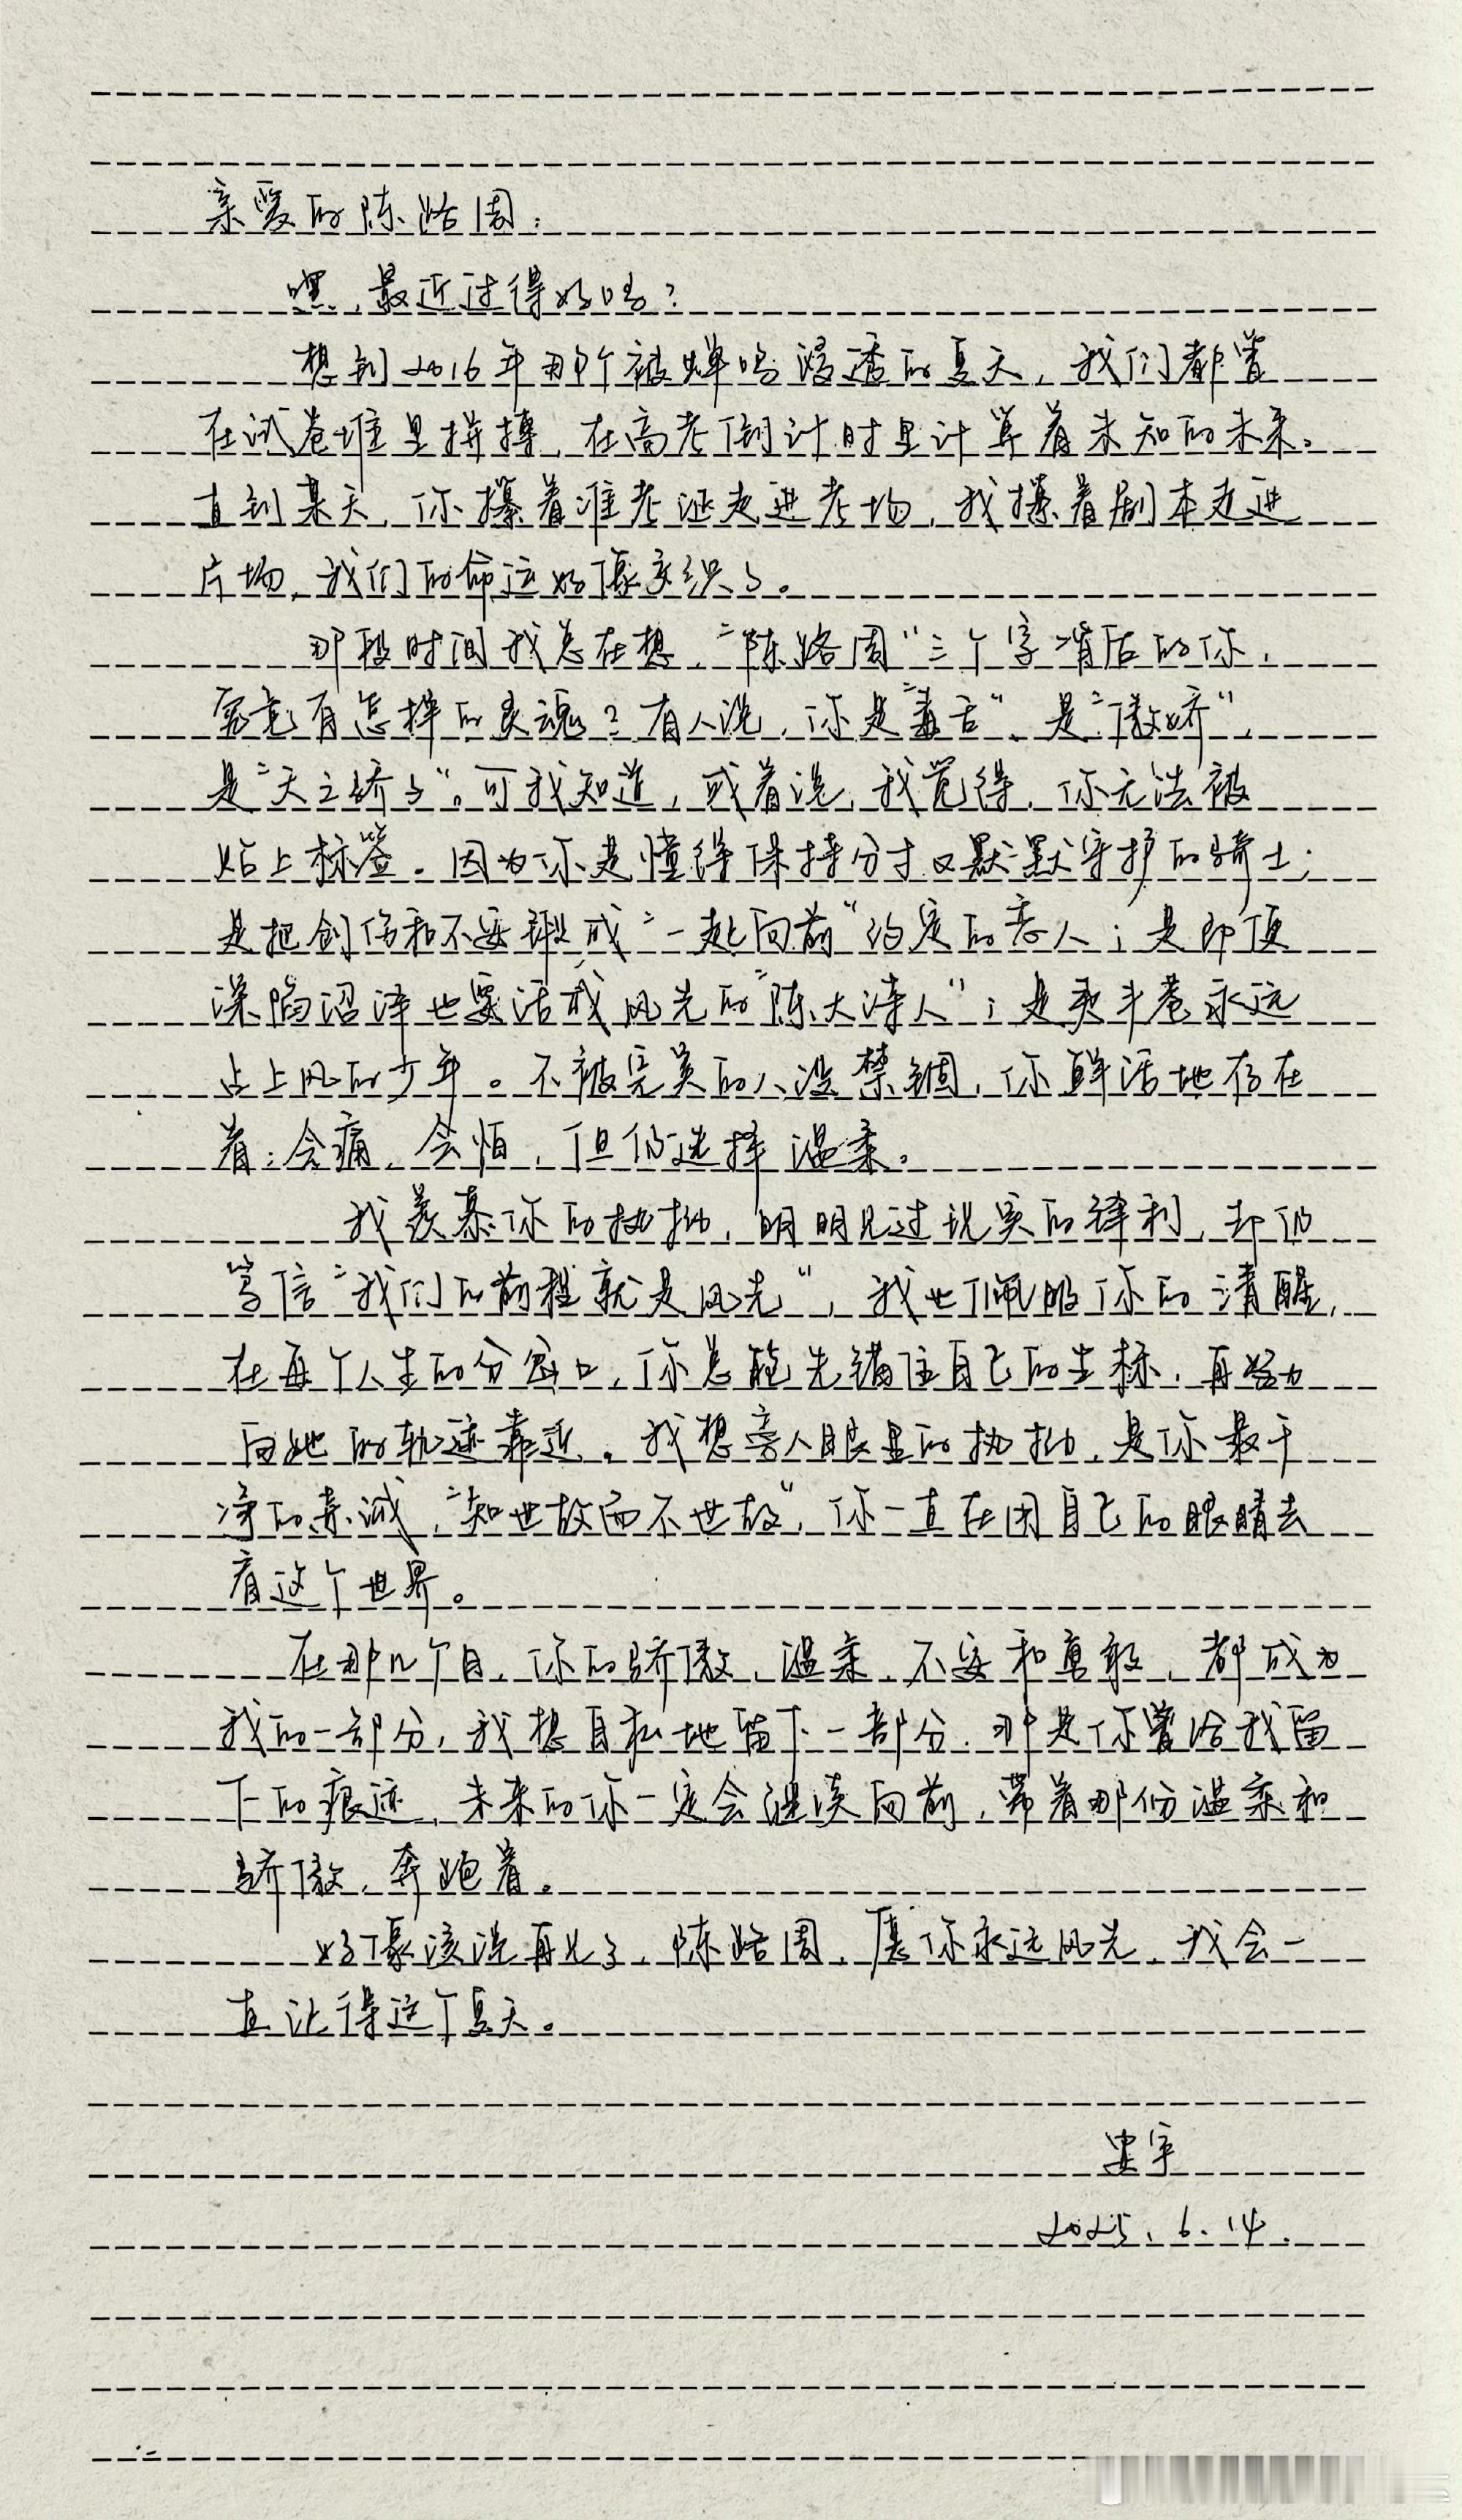 亲爱的陈路周:
嘿,最近过得好吗?
想到2016年那个被蝉鸣浸透的夏天,我们都曾
在试卷堆里拼搏,在高考倒计时里计算着未知的未来。
直到某天,你攥着准考证走进考场,我攥着剧本走进
片场,我们的命运好像交织了。
那段时间我总在想,“陈路周”三个字背后的你,
究竟有怎样的灵魂?有人说,你是“毒舌”、是“傲娇”,
是“天之骄子”。可我知道,或者说,我觉得,你无法被
贴上标签。因为你是懂得保持分寸又默默守护的骑士;
是把创伤和不安酿成“一起向前”约定的恋人;是即便
深陷沼泽也要活成风光的“陈大诗人”;是夹斗巷永远
占上风的少年。不被完美的人设禁锢,你鲜活地存在
着:会痛、会怕,但仍选择温柔。
我羡慕你的执拗,明明见过现实的锋利,却仍
笃信“我们的前程就是风光”,我也佩服你的清醒,
在每个人生的分岔口,你总能先锚住自己的坐标,再努力
向她的轨迹靠近。我想旁人眼里的执拗,是你最干
净的赤诚,“知世故而不世故”,你一直在用自己的眼睛去
看这个世界。
在那几个月,你的骄傲、温柔、不安和勇敢,都成为
我的一部分,我想自私地留下一部分,那是你曾给我留
下的痕迹,未来的你一定会继续向前,带着那份温柔和
骄傲,奔跑着。
好像该说再见了,陈路周,愿你永远风光,我会一
直记得这个夏天。
安宇
2025.6.14.